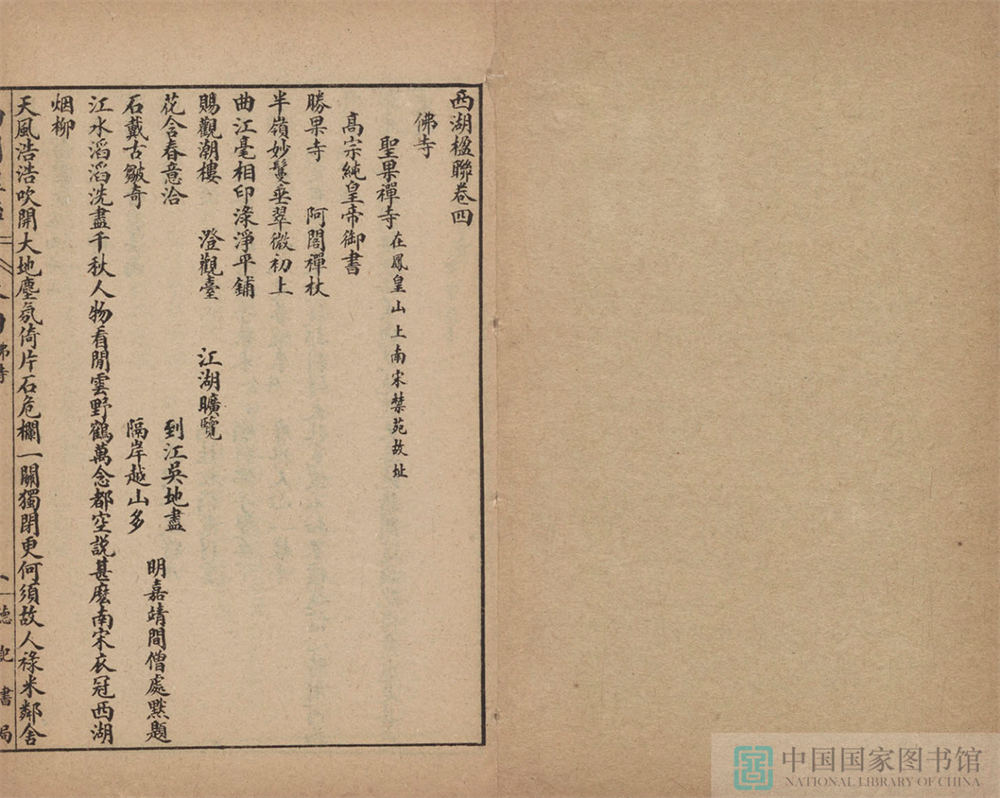 西湖楹聯卷四
佛寺
聖果禪寺在鳳皇山上南宋禁苑故址
高宗純皇帝御書
勝果寺 阿閣禪杖
半嶺妙鬘垂翠微初上
曲江毫相印淥淨平鋪
賜觀潮樓 澄觀臺 江湖曠覽
花含春意洽 到江吳地盡
石戴古皺奇 隔岸越山多
明嘉靖間僧處默題
江水滔滔洗盡千秋人物看閒雲野鶴萬念都空說甚麼南宋衣冠西湖
烟柳
天風浩浩吹開大地塵氛倚片石危欄一關獨閉更何須故人祿米鄰舍
佛寺
德記書局
中国国家图书馆
NATIONAL LIBRARY OF CHINA